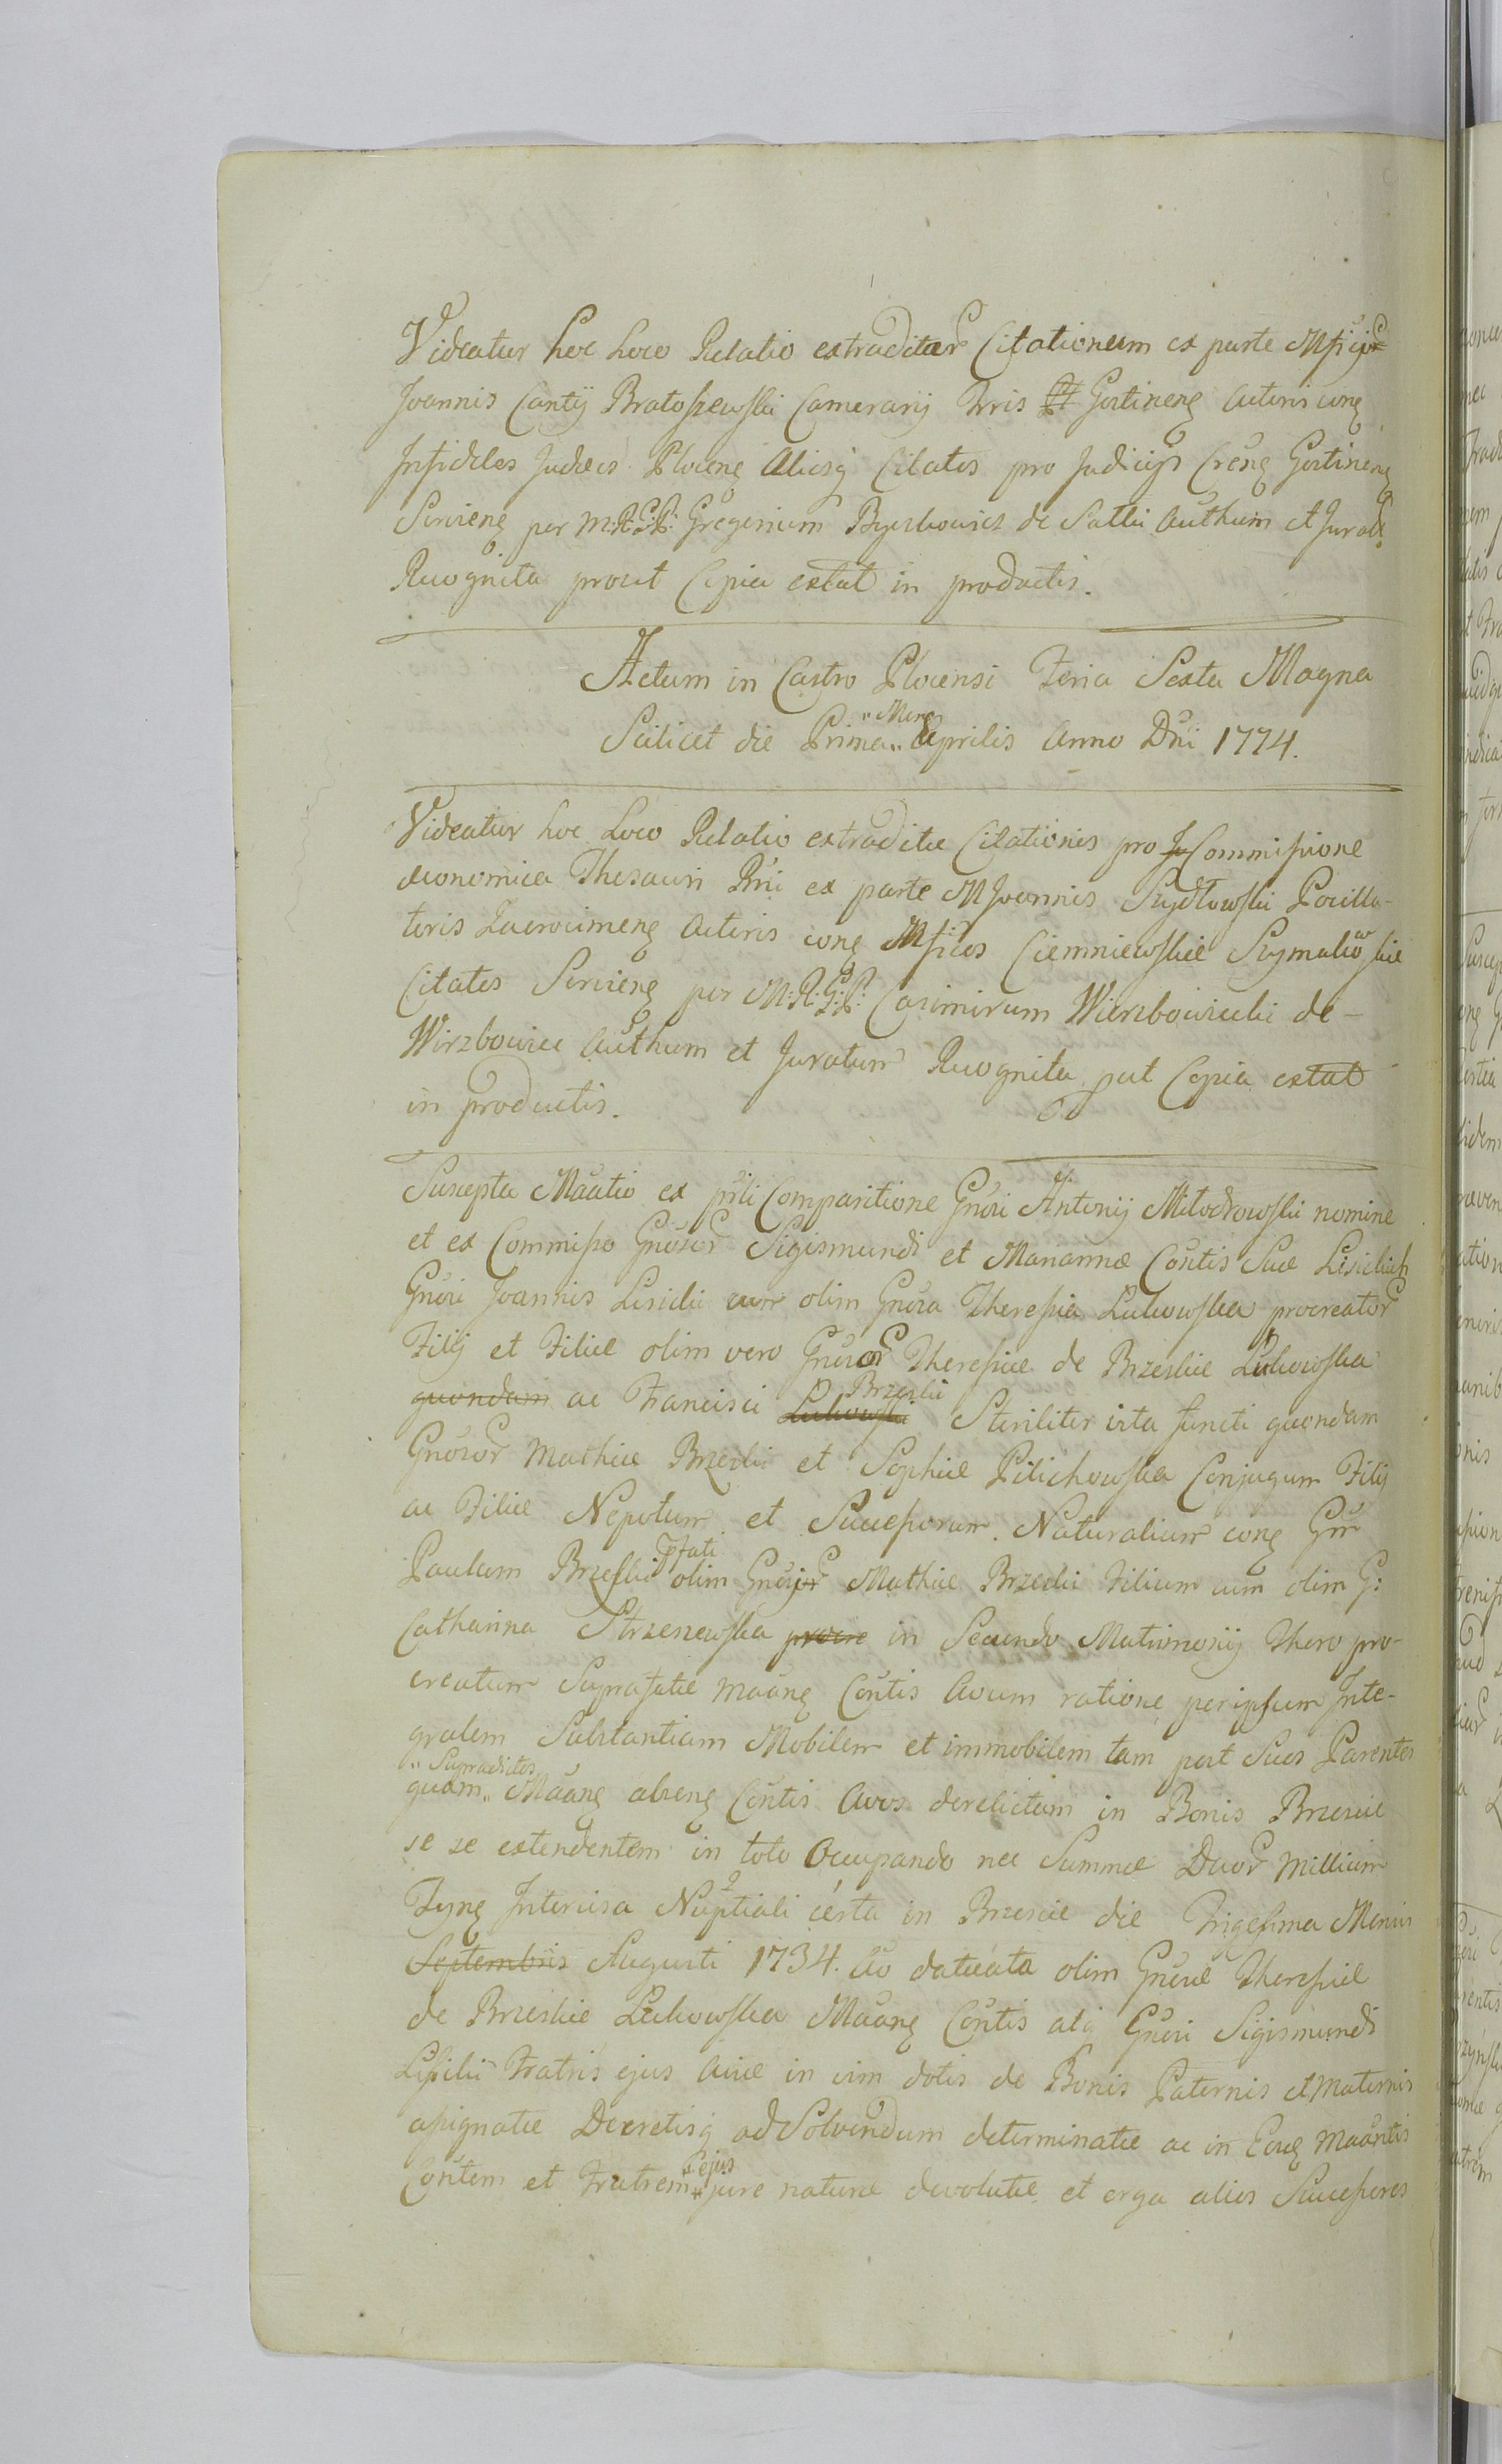 Videatur hoc Loco Relatio extraditar Citationum ex parte Mfici
Joannis Cantij Bratoszewski Camerarij Trris Gostinen Actoris con
Infideles Judaeos Plocen Aliosq Citatos pro Judicijs Cren Gostinen
Servien per M:R:G:R: Gregorium Byczkowicz de Sattki Authum et Jurat
Recognita prout Copia extat in productis.
Actum in Castro Plocensi Feria Sexta Magna
Scilicet die Prima "Mens" Aprilis Anno Dni 1774.
Videatur hoc Loco Relatio extraditae Citationis pro Ju Commissione
Oeconomica Thesauri Rni ex parte M Joannis Szydłowski Pocilla-
toris Zacrocimen Actoris con Mficos Ciemniewskie Szymakowskie
Citatos Servien per M:R:G:R: Casimirum Wierzbowiecki de
Wirzbowiec Authum et Juratum Recognita put Copia extat
in productis.
Suscepta Maatio ex psnli Comparitione Gnosi Antonij Miłodrowski nomine
et ex Commisso Gnosor Sigismundi et Mariannae Contis Suae Lisickich
Gnosi Joannis Lisicki cum olim Gnosa Theressia Lukowska procreator
Filij et Filiae olim vero Gnosor Theressiae de Brzeskie Lukowska
quondam ac Francisci Lukowski Brzeski Steriliter vita functi quondam
Gnosor Mathiae Brzeski et Sophiae Pilichowska Conjugum Filij
ac Filiae Nepotum et Successorum Naturalium con Gm
Paulum Brzeski pfati olim Gnosi Mathiae Brzeski Filium cum olim G:
Catharina Strzeszewska procre in Secundo Matrimonij Thoro pro-
creatum Suprafatae Maan Contis Avum ratione per ipsum Inte-
gralem Substantiam Mobilem et immobilem tam post Suos Parentes
quam "Supradictos" Maan abien Contis Avos derelictam in Bonis Brzescie
se se extendentem in toto Occupando nec Summae Duor Millium
Fyn Intercisa Nuptiali certa in Brzescie die Trigesima Mensis
Septembris Augusti 1734. Ao datuata olim Gnosae Theressiae
de Brzeskie Lukowska Maan Contis atq Gnosi Sigismundi
Lisicki Fratris ejus Aviae in vim dotis de Bonis Paternis et Maternis
assignatae Decretisq ad Solvendum determinatae ac in Maantis
Contem et Fratrem "ejus" jure naturae devolutae et erga alios Successores